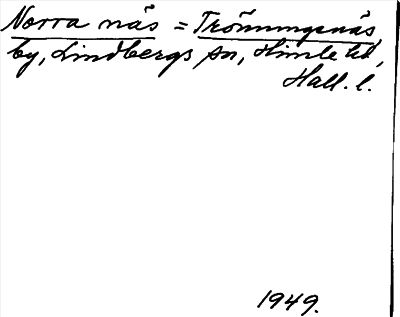 Norra näs = Trönningenäs,
by, Lindbergs sn, Himle hd,
Hall. l.
1949.